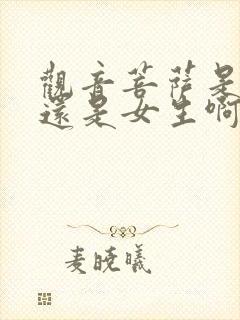 觀音菩薩是
還是女生啊
麦曉曦